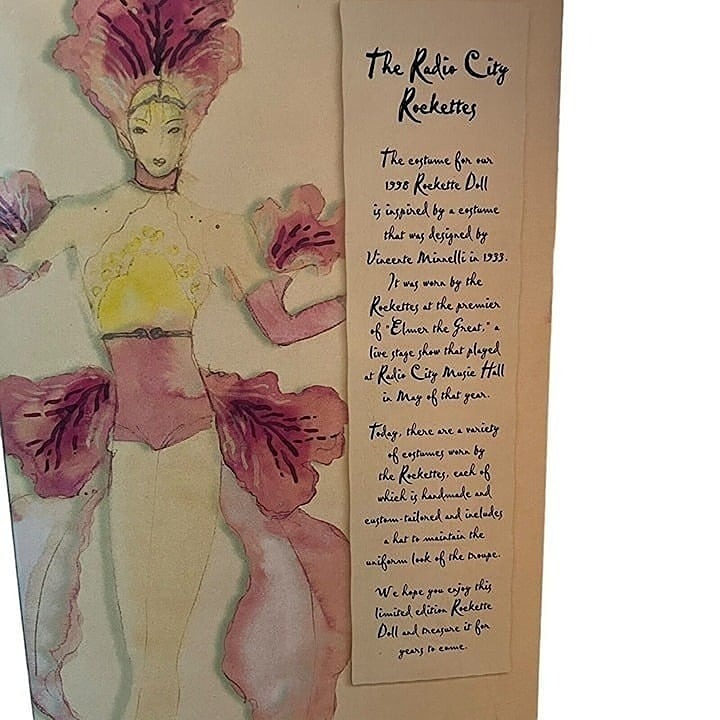 The Radio City
Rockettes
The costume for our
1998 Rockette Doll
is inspired by a costume
that was designed by
Vincente Minnelli in 1933.
It was worn by the
Rockettes at the premier
of "Elmer the Great," a
live stage show that played
at Radio City Music Hall
in May of that year.
Today, there are a variety
of costumes worn by
the Rockettes, each of
which is handmade and
custom-tailored and includes
a hat to maintain the
uniform look of the troupe.
We hope you enjoy this
limited edition Rockette
Doll and treasure it for
years to come.